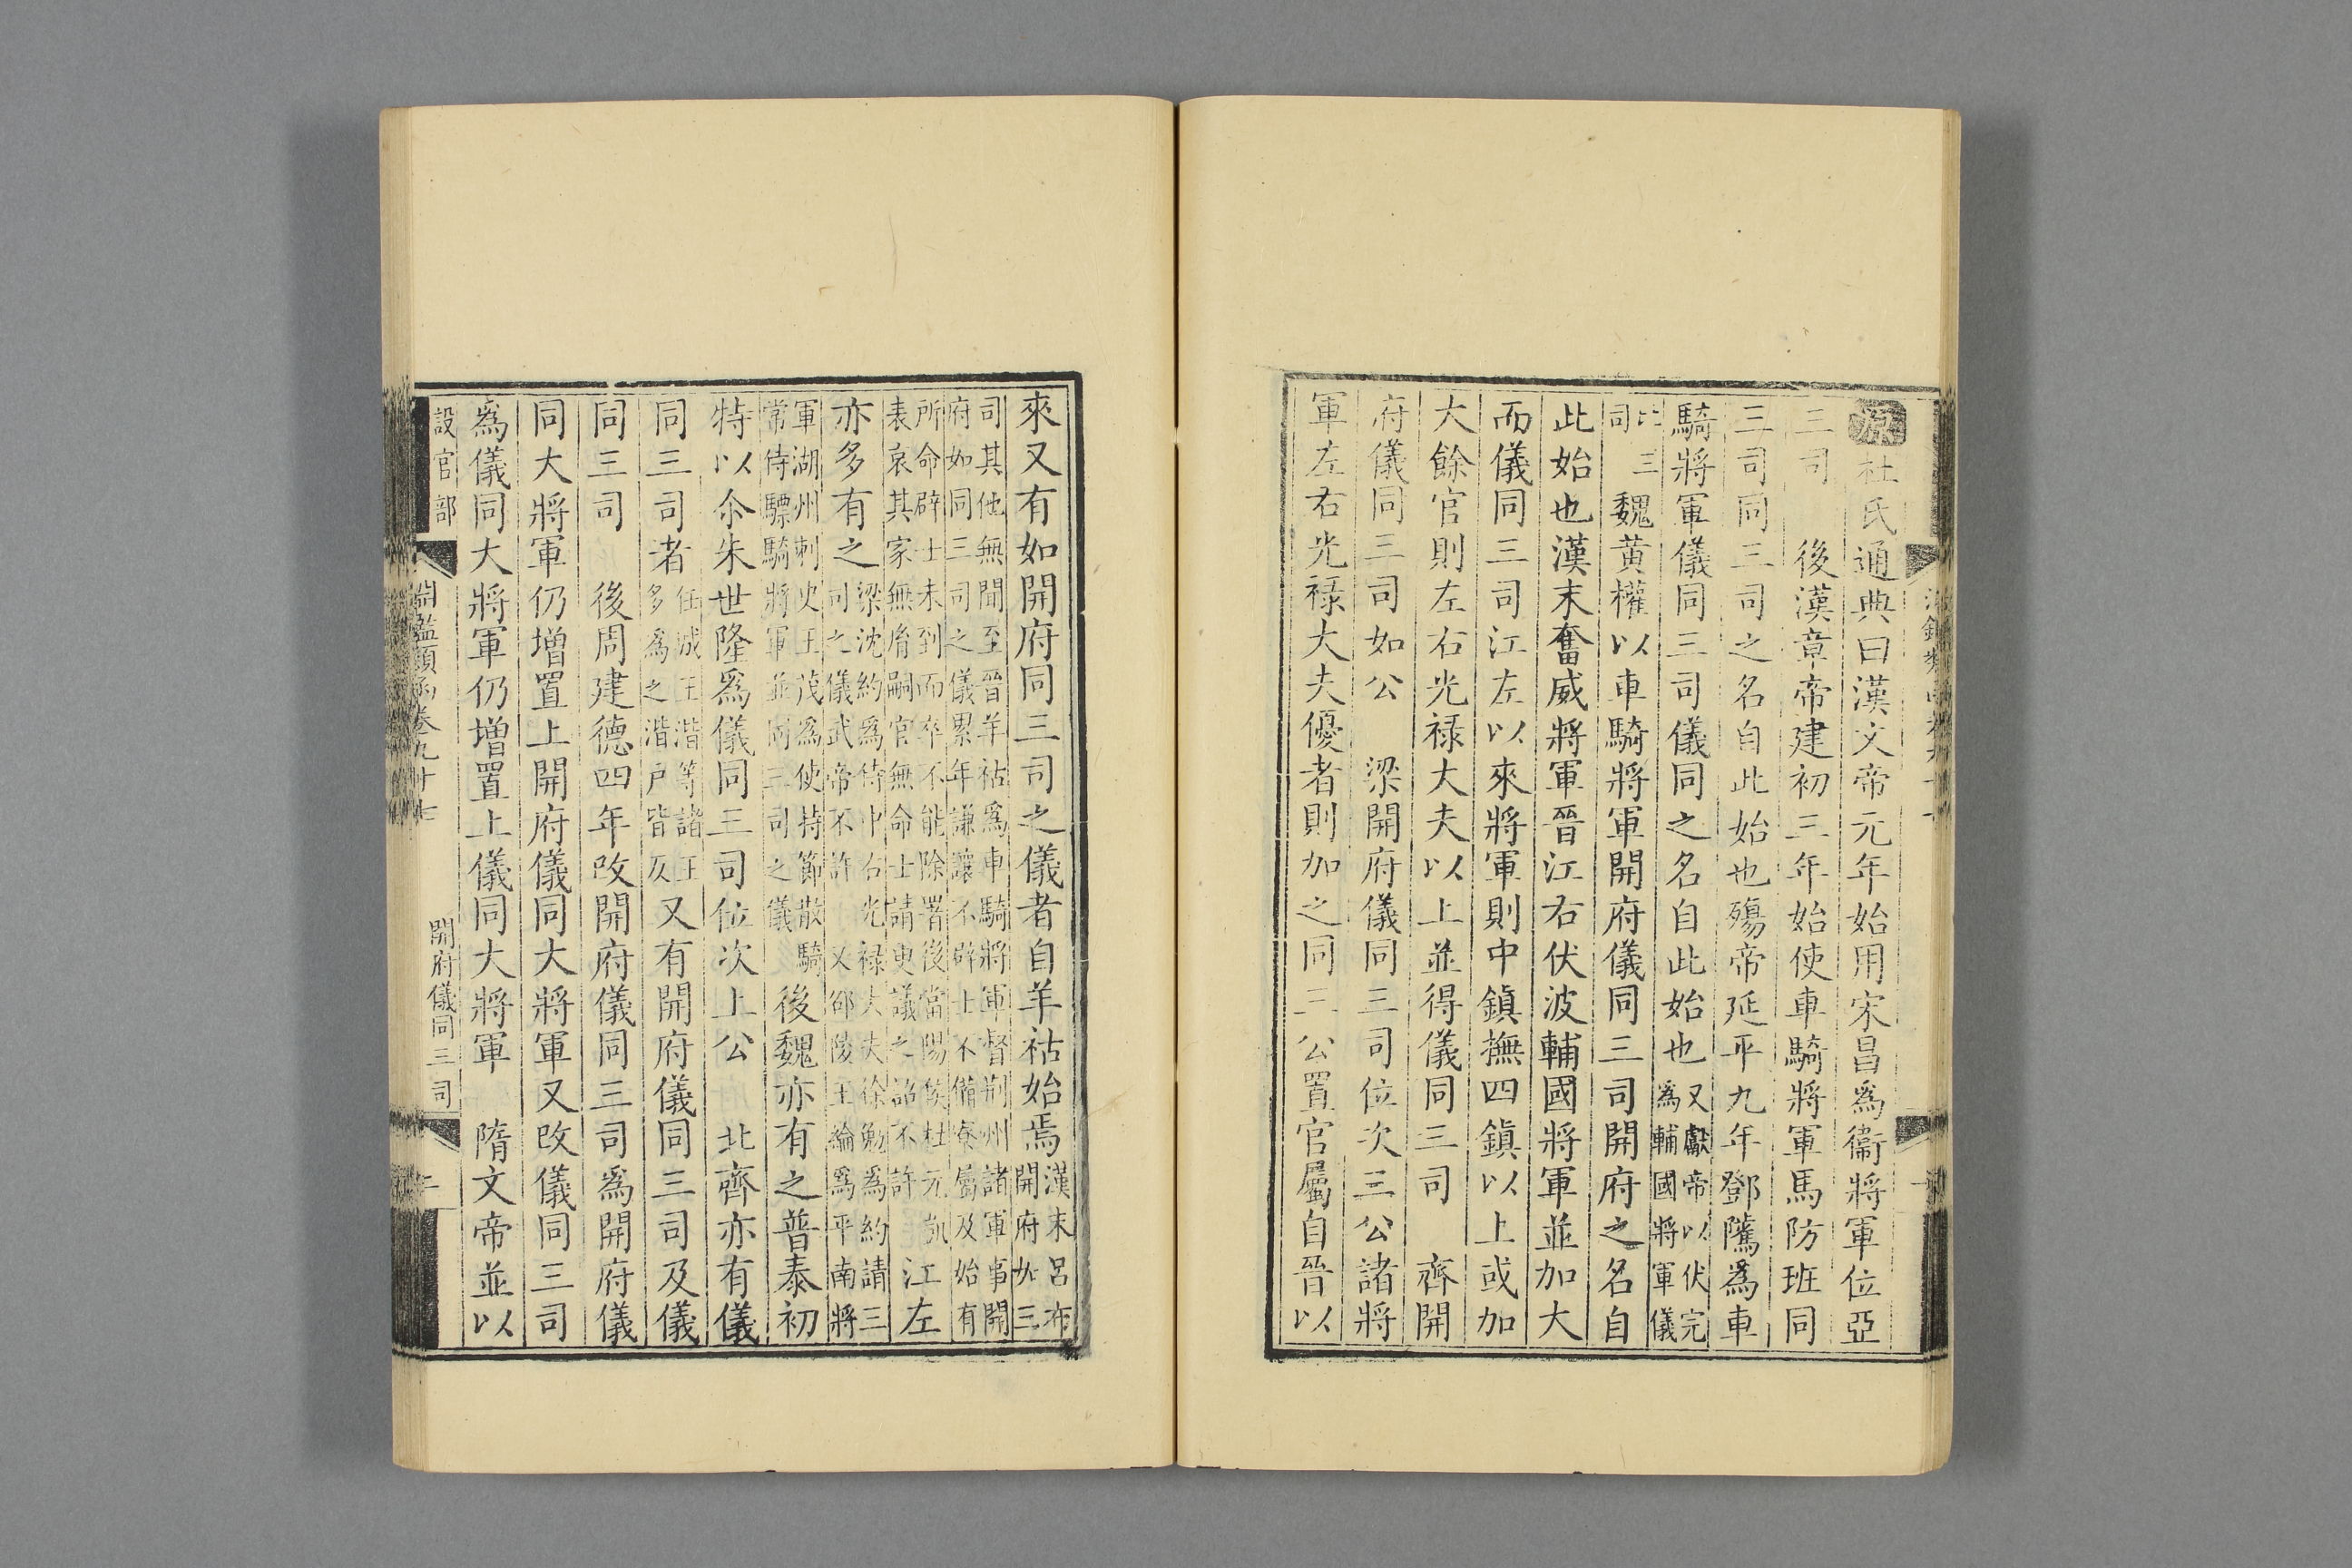 原杜氏通典曰漢文帝元年始用宋昌爲衞將軍位亞
三司　後漢章帝建初三年始使車騎將軍馬防班同
三司同三司之名自此始也殤帝延平九年鄧騭爲車
騎將軍儀同三司儀同之名自此始也又獻帝以伏完
爲輔國將軍儀
比三
司
魏黄權以車騎將軍開府儀同三司開府之名自
此始也漢末奮威將軍晉江右伏波輔國將軍並加大
而儀同三司江左以來將軍則中鎮撫四鎮以上或加
大餘官則左右光禄大夫以上並得儀同三司　齊開
府儀同三司如公　梁開府儀同三司位次三公諸將
軍左右光禄大夫優者則加之同三公置官屬自晉以
來又有如開府同三司之儀者自羊祜始焉漢末呂布
開府如三
司其他無聞至晉羊祜爲車騎將軍督荆州諸軍事開
府如同三司之儀累年謙讓不辟士不備寮屬及始有
所命辟士未到而卒不能除署後當陽侯杜元凱
表哀其家無胤嗣官無命士請更議之詔不許
江左
亦多有之
梁沈約爲侍中右光禄大夫徐勉爲約請三
司之儀武帝不許　又邵陵王綸爲平南將
軍湖州刺史王茂爲使持節散騎
常侍驃騎將軍並同三司之儀
後魏亦有之普泰初
特以尒朱世隆爲儀同三司位次上公　北齊亦有儀
同三司者
任城王湝等諸王
多爲之湝戸皆
又有開府儀同三司及儀
同三司　後周建德四年改開府儀同三司爲開府儀
同大將軍仍増置上開府儀同大將軍又改儀同三司
爲儀同大將軍仍増置上儀同大將軍　隋文帝並以
設官部
淵鑑類函卷九十七
開府儀同三司
二